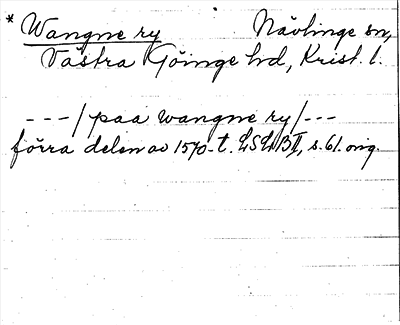 * Wangne ry Nävlinge sn,
Västra Göinge hd, Krist. l.
---/paa wangne ry/---
förra delen av 1570-t. LSLB II, s. 61. orig.